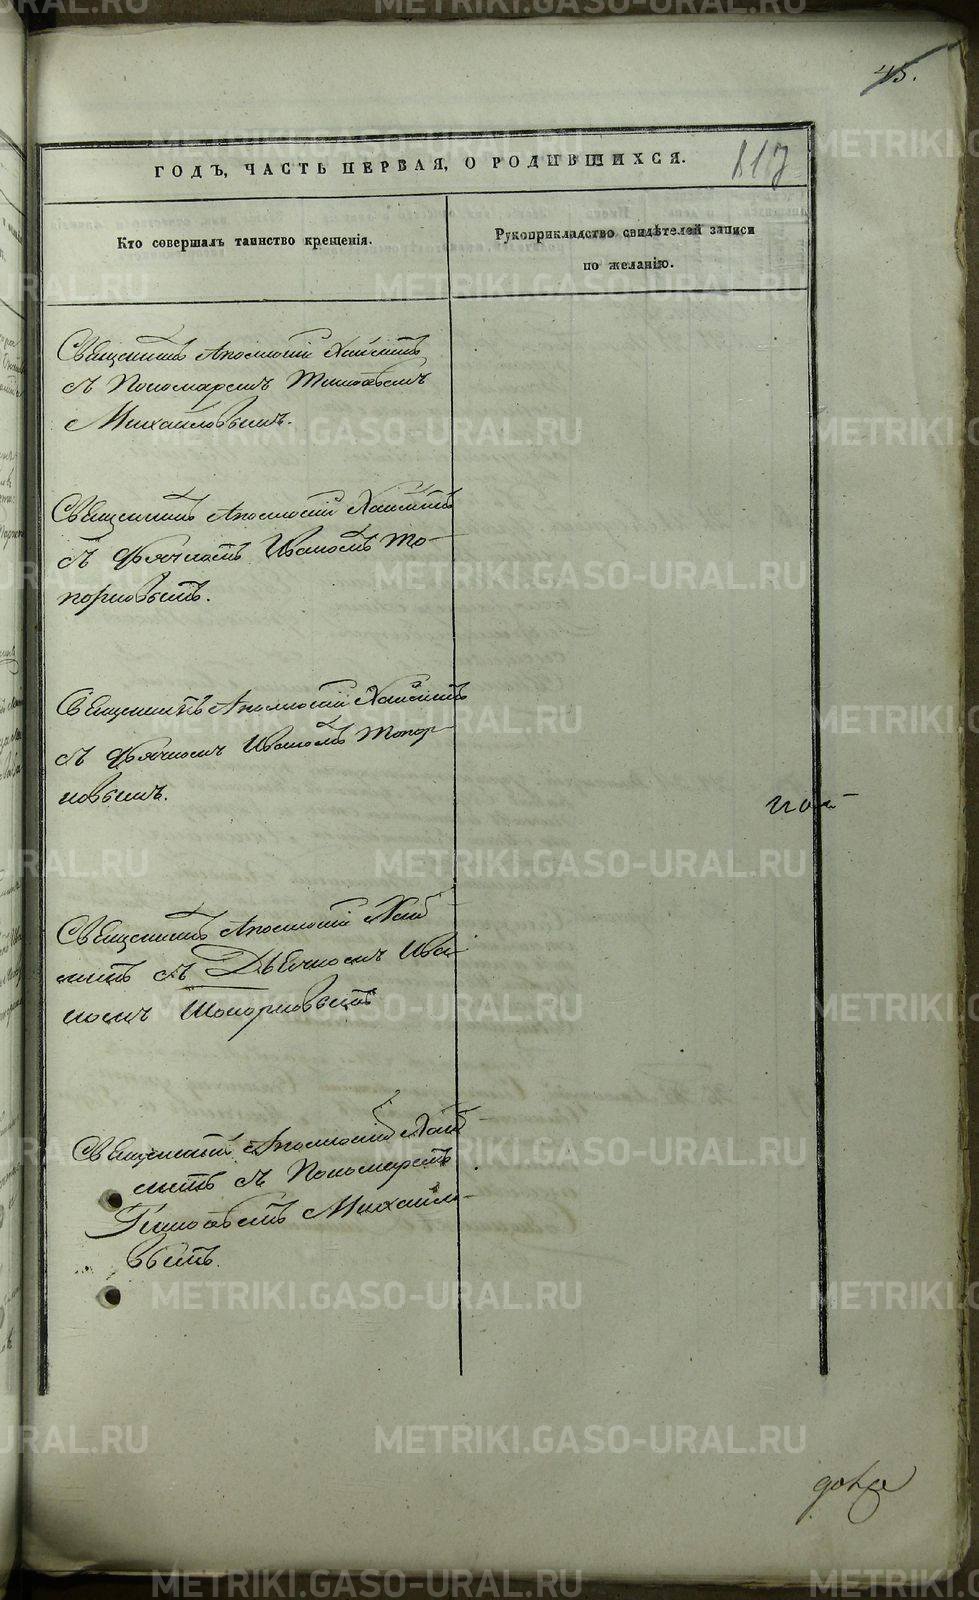 45.
ГОДЪ, ЧАСТЬ ПЕРВАЯ, О РОДИВШИХСЯ.
117
Кто совершалъ таинство крещенія.
Рукоприкладство свидѣтелей записи
по желанію.
Священникъ
съ Пономаремъ Тимофеемъ
Михайловымъ.
Священникъ
съ Дьячкомъ Иваномъ То-
порковымъ.
Священникъ
съ Дьячкомъ Иваномъ Топор-
ковымъ.
Священникъ
съ Дьячкомъ Ива-
номъ Топорковымъ
Священникъ
съ Пономаремъ
Тимофеемъ Михайло-
вымъ.
METRIKI.GASO-URAL.RU